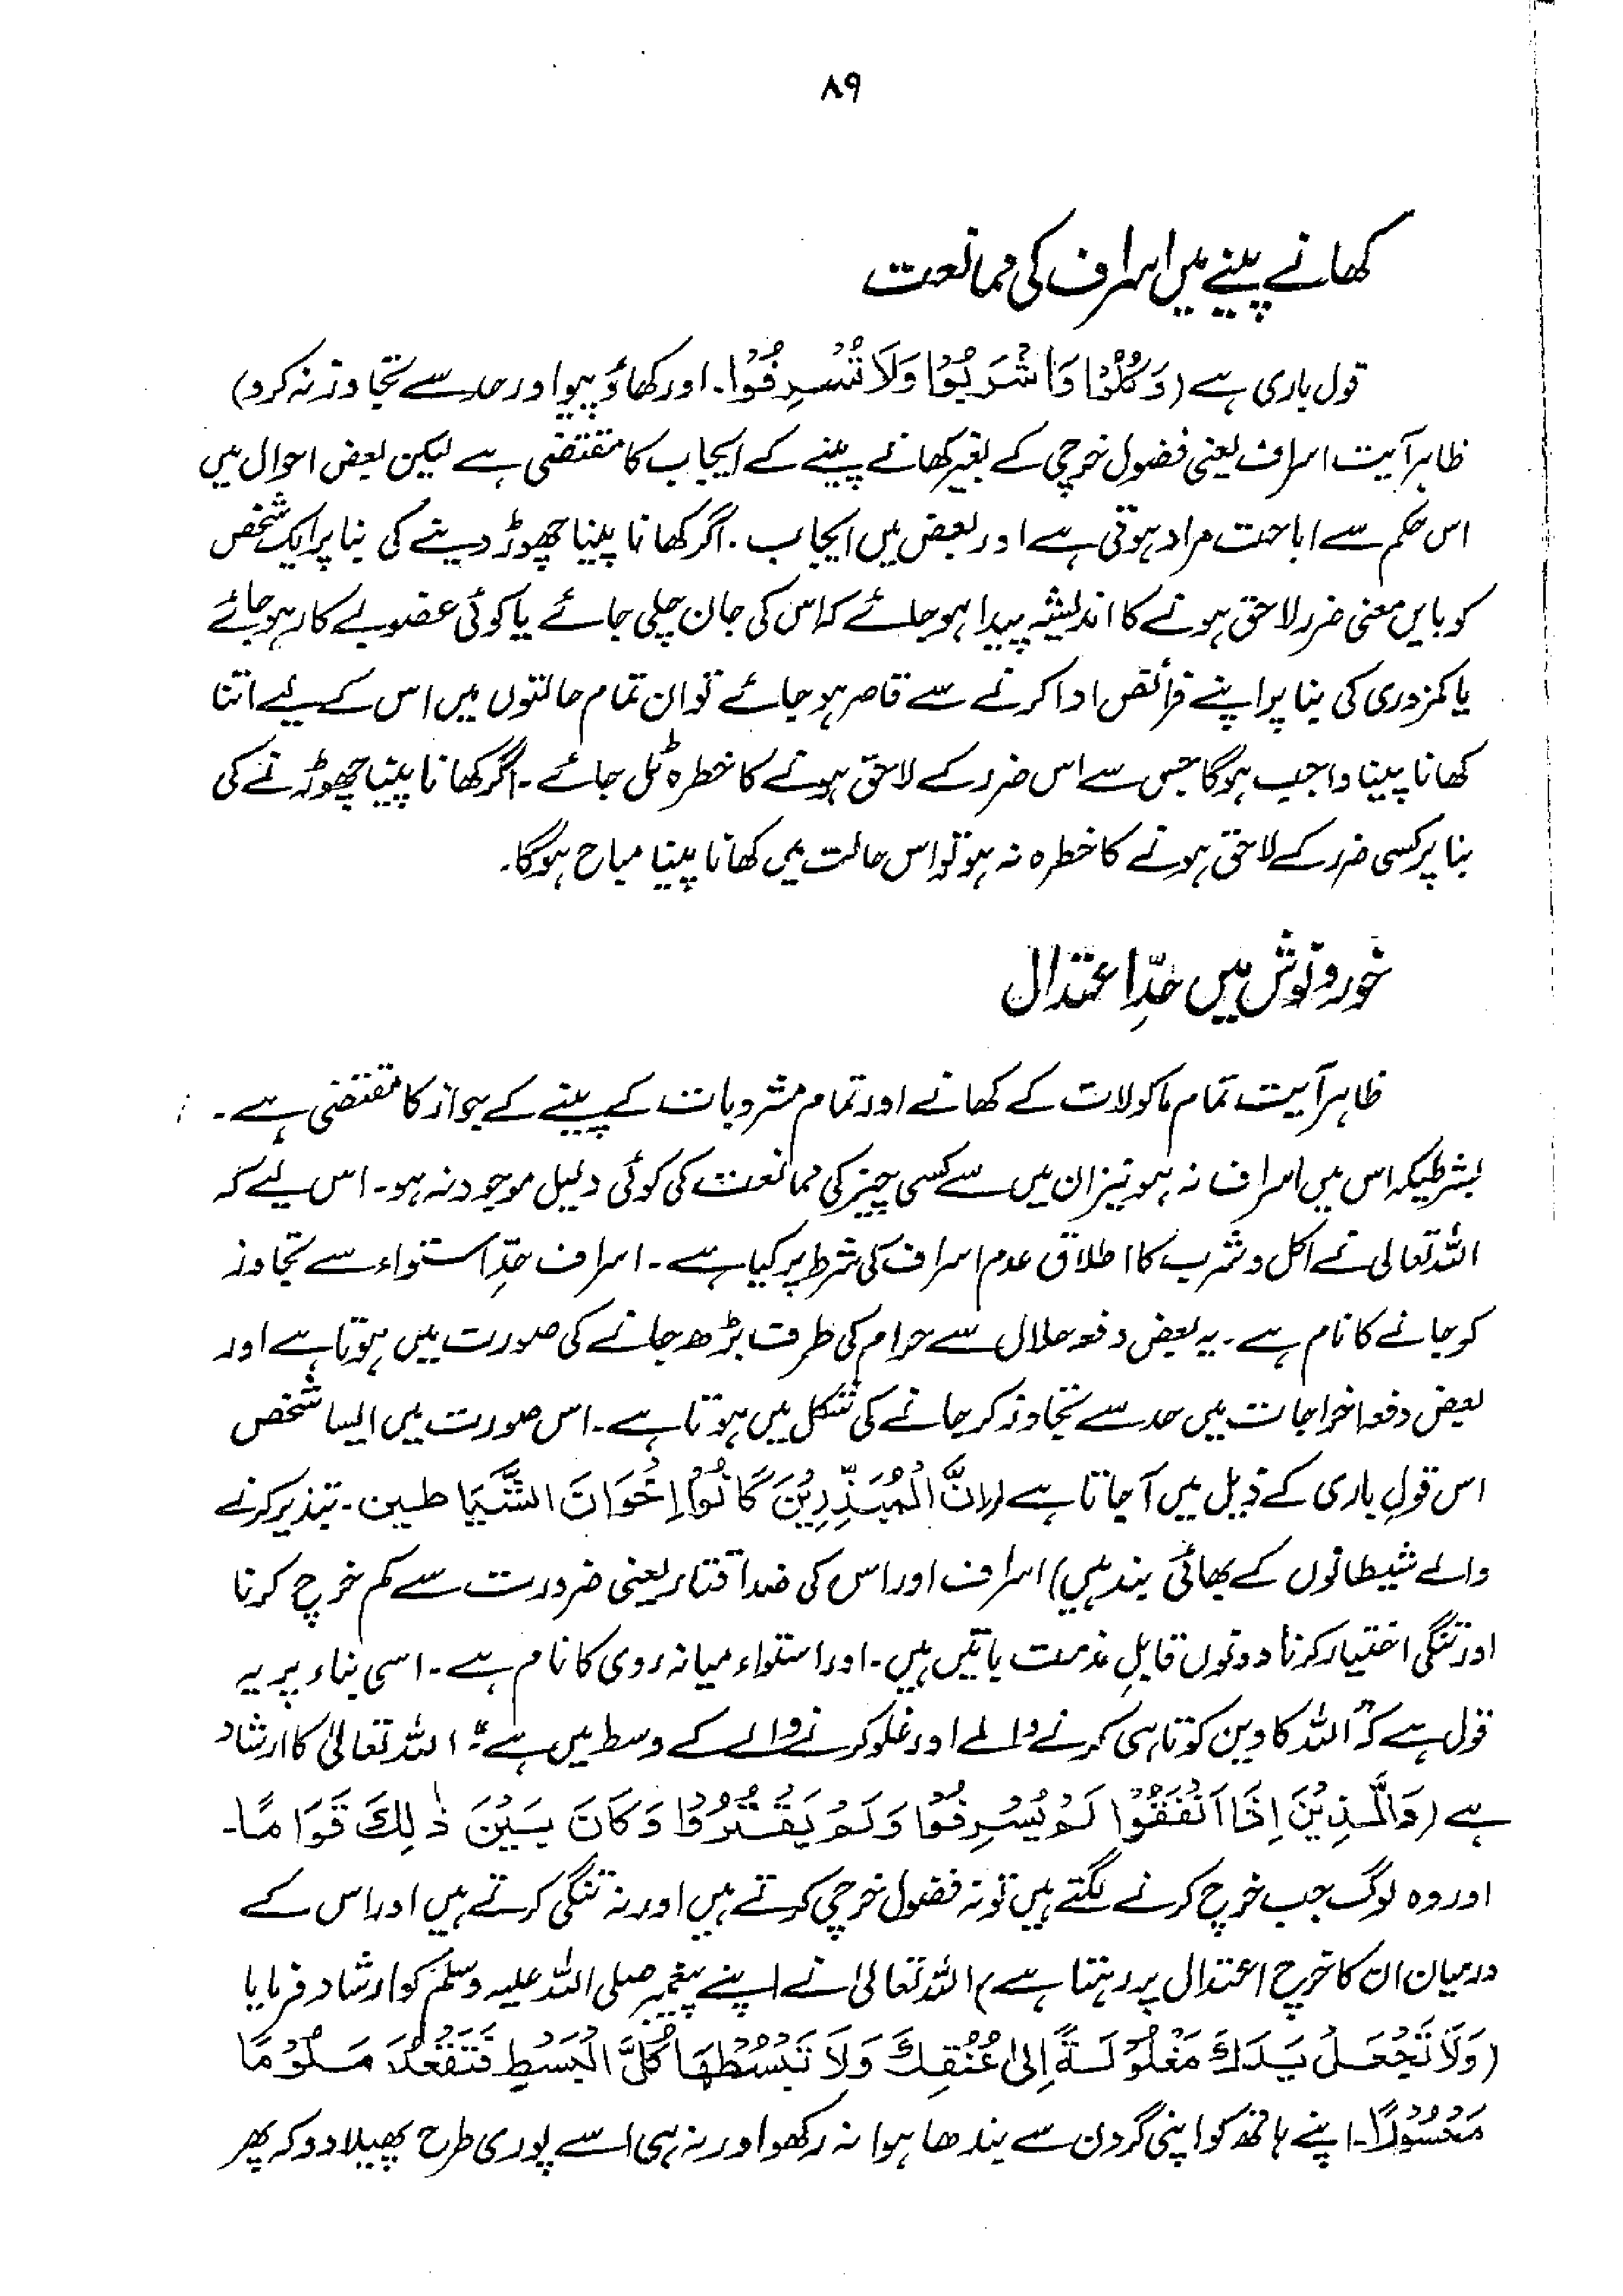 ۸۹
کھانے پینے میں اسراف کی ممانعت
قول باری ہے (وَكُلُوْا وَاشْرَبُوْا وَلَا تُسْرِفُوْا۔ اور کھاؤ پیو اور حد سے تجاوز نہ کرو)
ظاہر آیت اسراف یعنی فضول خرچی کے بغیر کھانے پینے کے ایجاب کا مقتضی ہے لیکن بعض احوال میں
اس حکم سے اباحت مراد ہوتی ہے اور بعض میں ایجاب۔ اگر کھانا پینا چھوڑ دینے کی بنا پر ایک شخص
کو بایں معنی ضرر لاحق ہونے کا اندیشہ پیدا ہو جائے کہ اس کی جان چلی جائے یا کوئی عضو بے کار ہو جائے
یا کمزوری کی بنا پر اپنے فرائض ادا کرنے سے قاصر ہو جائے تو ان تمام حالتوں میں اس کے لیے اتنا
کھانا پینا واجب ہوگا جس سے اس ضرر کے لاحق ہونے کا خطرہ ٹل جائے۔ اگر کھانا پینا چھوڑنے کی
بنا پر کسی ضرر کے لاحق ہونے کا خطرہ نہ ہو تو اس حالت میں کھانا پینا مباح ہوگا۔
خورونوش میں حدِّ اعتدال
ظاہر آیت تمام ماکولات کے کھانے اور تمام مشروبات کے پینے کے جواز کا مقتضی ہے۔
بشرطیکہ اس میں اسراف نہ ہو نیز ان میں سے کسی چیز کی ممانعت کی کوئی دلیل موجود نہ ہو۔ اس لیے کہ
اللہ تعالیٰ نے اکل و شرب کا اطلاق عدم اسراف کی شرط پر کیا ہے۔ اسراف حدِّ استواء سے تجاوز
کر جانے کا نام ہے۔ یہ بعض دفعہ حلال سے حرام کی طرف بڑھ جانے کی صورت میں ہوتا ہے اور
بعض دفعہ اخراجات میں حد سے تجاوز کر جانے کی شکل میں ہوتا ہے۔ اس صورت میں ایسا شخص
اس قولِ باری کے ذیل میں آ جاتا ہے (اِنَّ الْمُبَذِّرِيْنَ كَانُوْا اِخْوَانَ الشَّيَاطين۔ تبذیر کرنے
والے شیطانوں کے بھائی بند ہیں) اسراف اور اس کی ضد اقتار یعنی ضرورت سے کم خرچ کرنا
اور تنگی اختیار کرنا دونوں قابلِ مذمت باتیں ہیں۔ اور استواء میانہ روی کا نام ہے۔ اسی بناء پر یہ
قول ہے کہ "اللہ کا دین کوتاہی کرنے والے اور غلو کرنے والے کے وسط میں ہے"۔ اللہ تعالیٰ کا ارشاد
ہے (وَالَّذِيْنَ اِذَا اَنْفَقُوْا لَمْ يُسْرِفُوْا وَلَمْ يَقْتُرُوْا وَكَانَ بَيْنَ ذٰلِكَ قَوَامًا۔
اور وہ لوگ جب خرچ کرنے لگتے ہیں تو نہ فضول خرچی کرتے ہیں اور نہ تنگی کرتے ہیں اور اس کے
درمیان ان کا خرچ اعتدال پر رہتا ہے) اللہ تعالیٰ نے اپنے پیغمبر صلی اللہ علیہ وسلم کو ارشاد فرمایا
(وَلَا تَجْعَلْ يَدَكَ مَغْلُوْلَةً اِلىٰ عُنُقِكَ وَلَا تَبْسُطْهَا كُلَّ الْبَسْطِ فَتَقْعُدَ مَلُوْمًا
مَحْسُوْرًا۔ اپنے ہاتھ کو اپنی گردن سے بندھا ہوا نہ رکھو اور نہ ہی اسے پوری طرح پھیلا دو کہ پھر